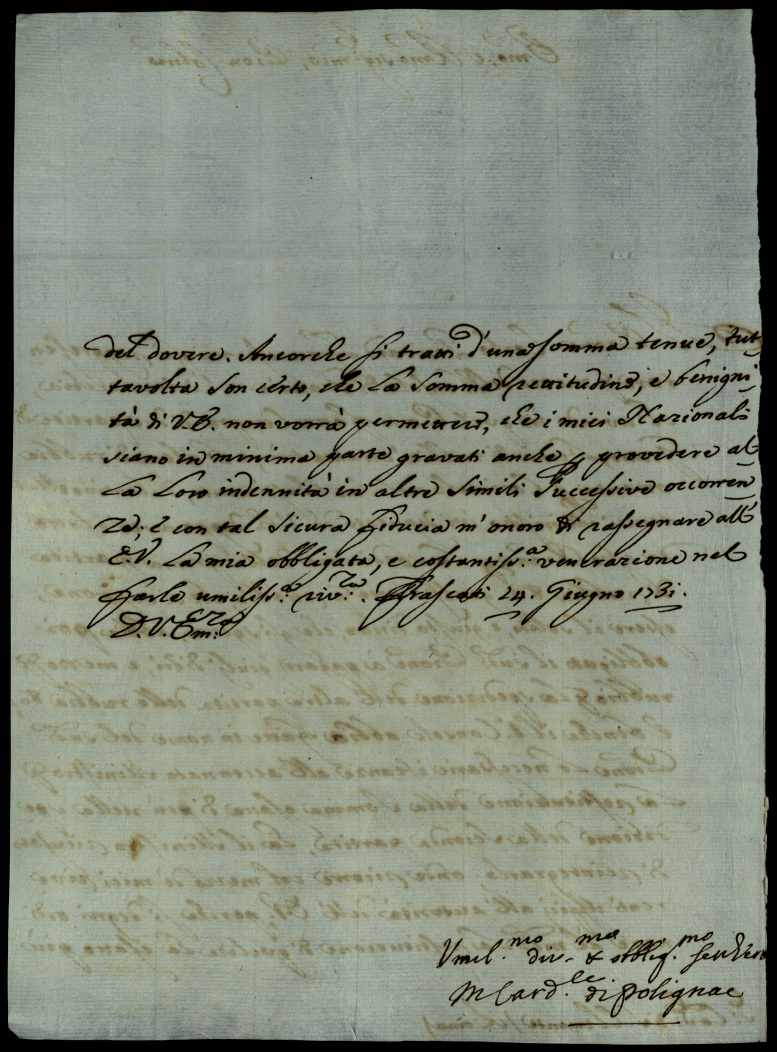 del dovere. Ancorche si tratti d'una somma tenue, tut-
tavolta son certo, che la somma rettitudine, e benigni-
tà di V.E. non vorrà permettere, che i miei Nazionali
siano in minima parte gravati anche p provedere al-
la loro indennità in altre simili successive occorren-
ze; e con tal sicura fiducia m'onoro di rassegnare all'
E.V. la mia obbligata, e costantiss.a venerazione nel
farle umiliss.a riv.za. Frascati 24. Giugno 1731.
D.V.Em.za
Umel.mo div.mo & obblig.mo
M Card.le di Polignac